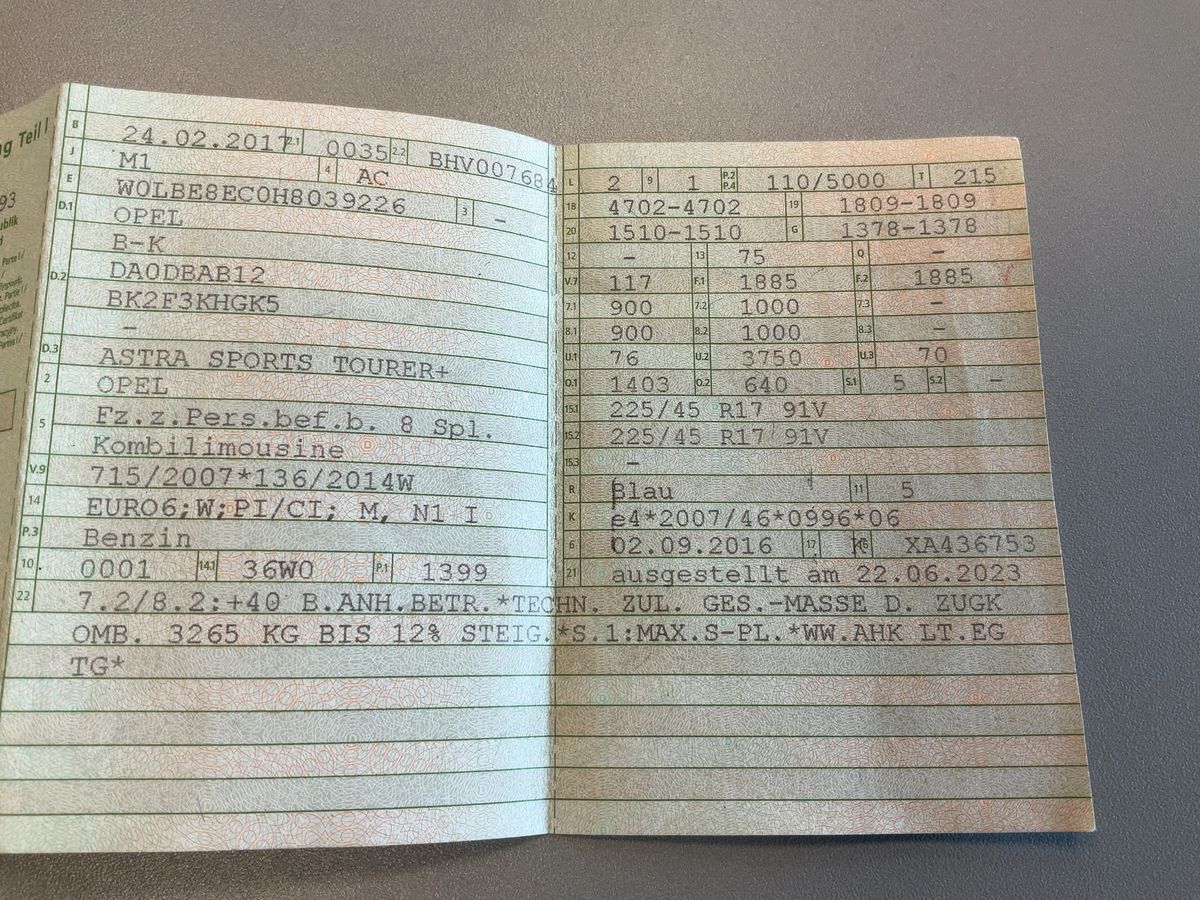 ng Teil I
93
ublik
d
B 24.02.2017 2.1 0035 2.2 BHV007684
J M1 4 AC
E W0LBE8EC0H8039226 3 –
D.1 OPEL
B-K
D.2 DA0DBAB12
BK2F3KHGK5
–
D.3 ASTRA SPORTS TOURER+
2 OPEL
5 Fz.z.Pers.bef.b. 8 Spl.
Kombilimousine
V.9 715/2007*136/2014W
14 EURO6;W;PI/CI; M, N1 I
P.3 Benzin
10 0001 14.1 36W0 P.1 1399
L 2 9 1 P.2 P.4 110/5000 T 215
18 4702-4702 19 1809-1809
20 1510-1510 G 1378-1378
12 – 13 75 Q –
V.7 117 F.1 1885 F.2 1885
7.1 900 7.2 1000 7.3 –
8.1 900 8.2 1000 8.3 –
U.1 76 U.2 3750 U.3 70
O.1 1403 O.2 640 S.1 5 S.2 –
15.1 225/45 R17 91V
15.2 225/45 R17 91V
15.3 –
R Blau 11 5
K e4*2007/46*0996*06
6 02.09.2016 17 K 16 XA436753
21 ausgestellt am 22.06.2023
22 7.2/8.2:+40 B.ANH.BETR.*TECHN. ZUL. GES.-MASSE D. ZUGK
OMB. 3265 KG BIS 12% STEIG.*S.1:MAX.S-PL.*WW.AHK LT.EG
TG*